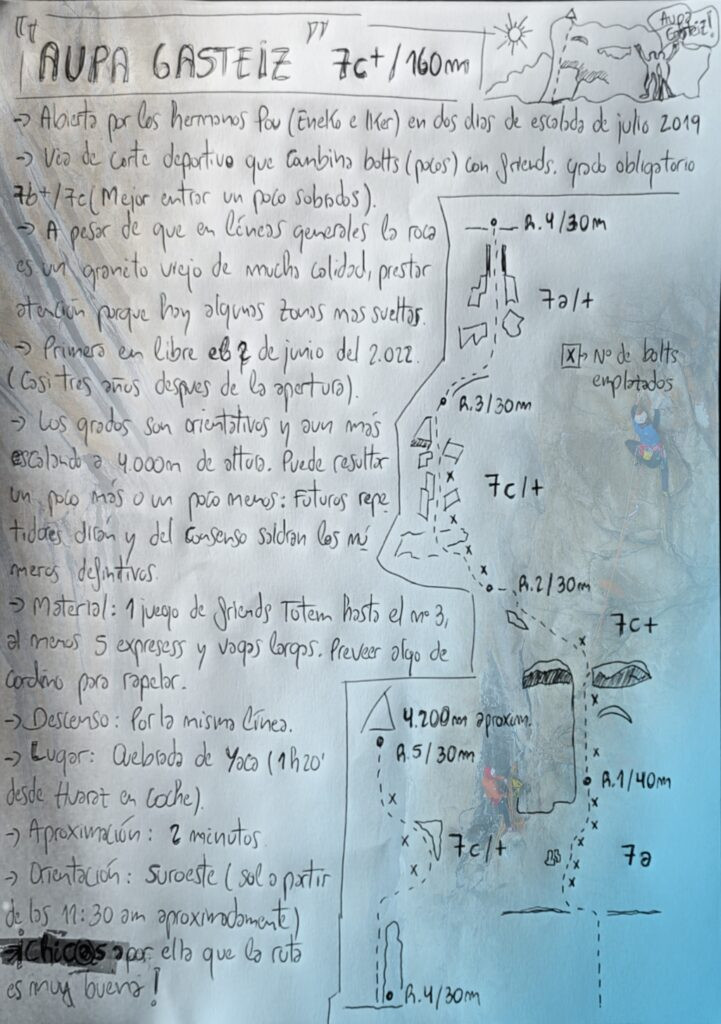 "AUPA GASTEIZ" 7c+/160m
Aupa Gasteiz!
→ Abierta por los hermanos Pou (Eneko e Iker) en dos dias de escalada de julio 2019
→ Via de corte deportivo que combina bolts (pocos) con friends. grado obligatorio
7b+/7c (Mejor entrar un poco sobrados).
→ A pesar de que en líneas generales la roca
es un granito viejo de mucha calidad, prestar
atención porque hay algunas zonas mas sueltas.
→ Primera en libre el 2 de junio del 2.022.
(Casi tres años despues de la apertura).
→ Los grados son orientativos y aun más
escalando a 4.000m de altura. Puede resultar
un poco más o un poco menos: Futuros repe
tidores dirán y del consenso saldran los nú
meros definitivos.
→ Material: 1 juego de friends Totem hasta el nº 3,
al menos 5 expresess y vagas largas. Preveer algo de
cordino para rapelar.
→ Descenso: Por la misma línea.
→ Lugar: Quebrada de Yaca (1h20'
desde Huaraz en coche).
→ Aproximación: 2 minutos.
→ Orientación: Suroeste (sol a partir
de las 11:30 am aproximadamente)
¡Chic@s a por ella que la ruta
es muy buena!
R.4/30m
7a/+
x → Nº de bolts
emplotados
R.3/30m
7c/+
R.2/30m
7c+
R.1/40m
7a
4.200m aproxim.
R.5/30m
7c/+
R.4/30m